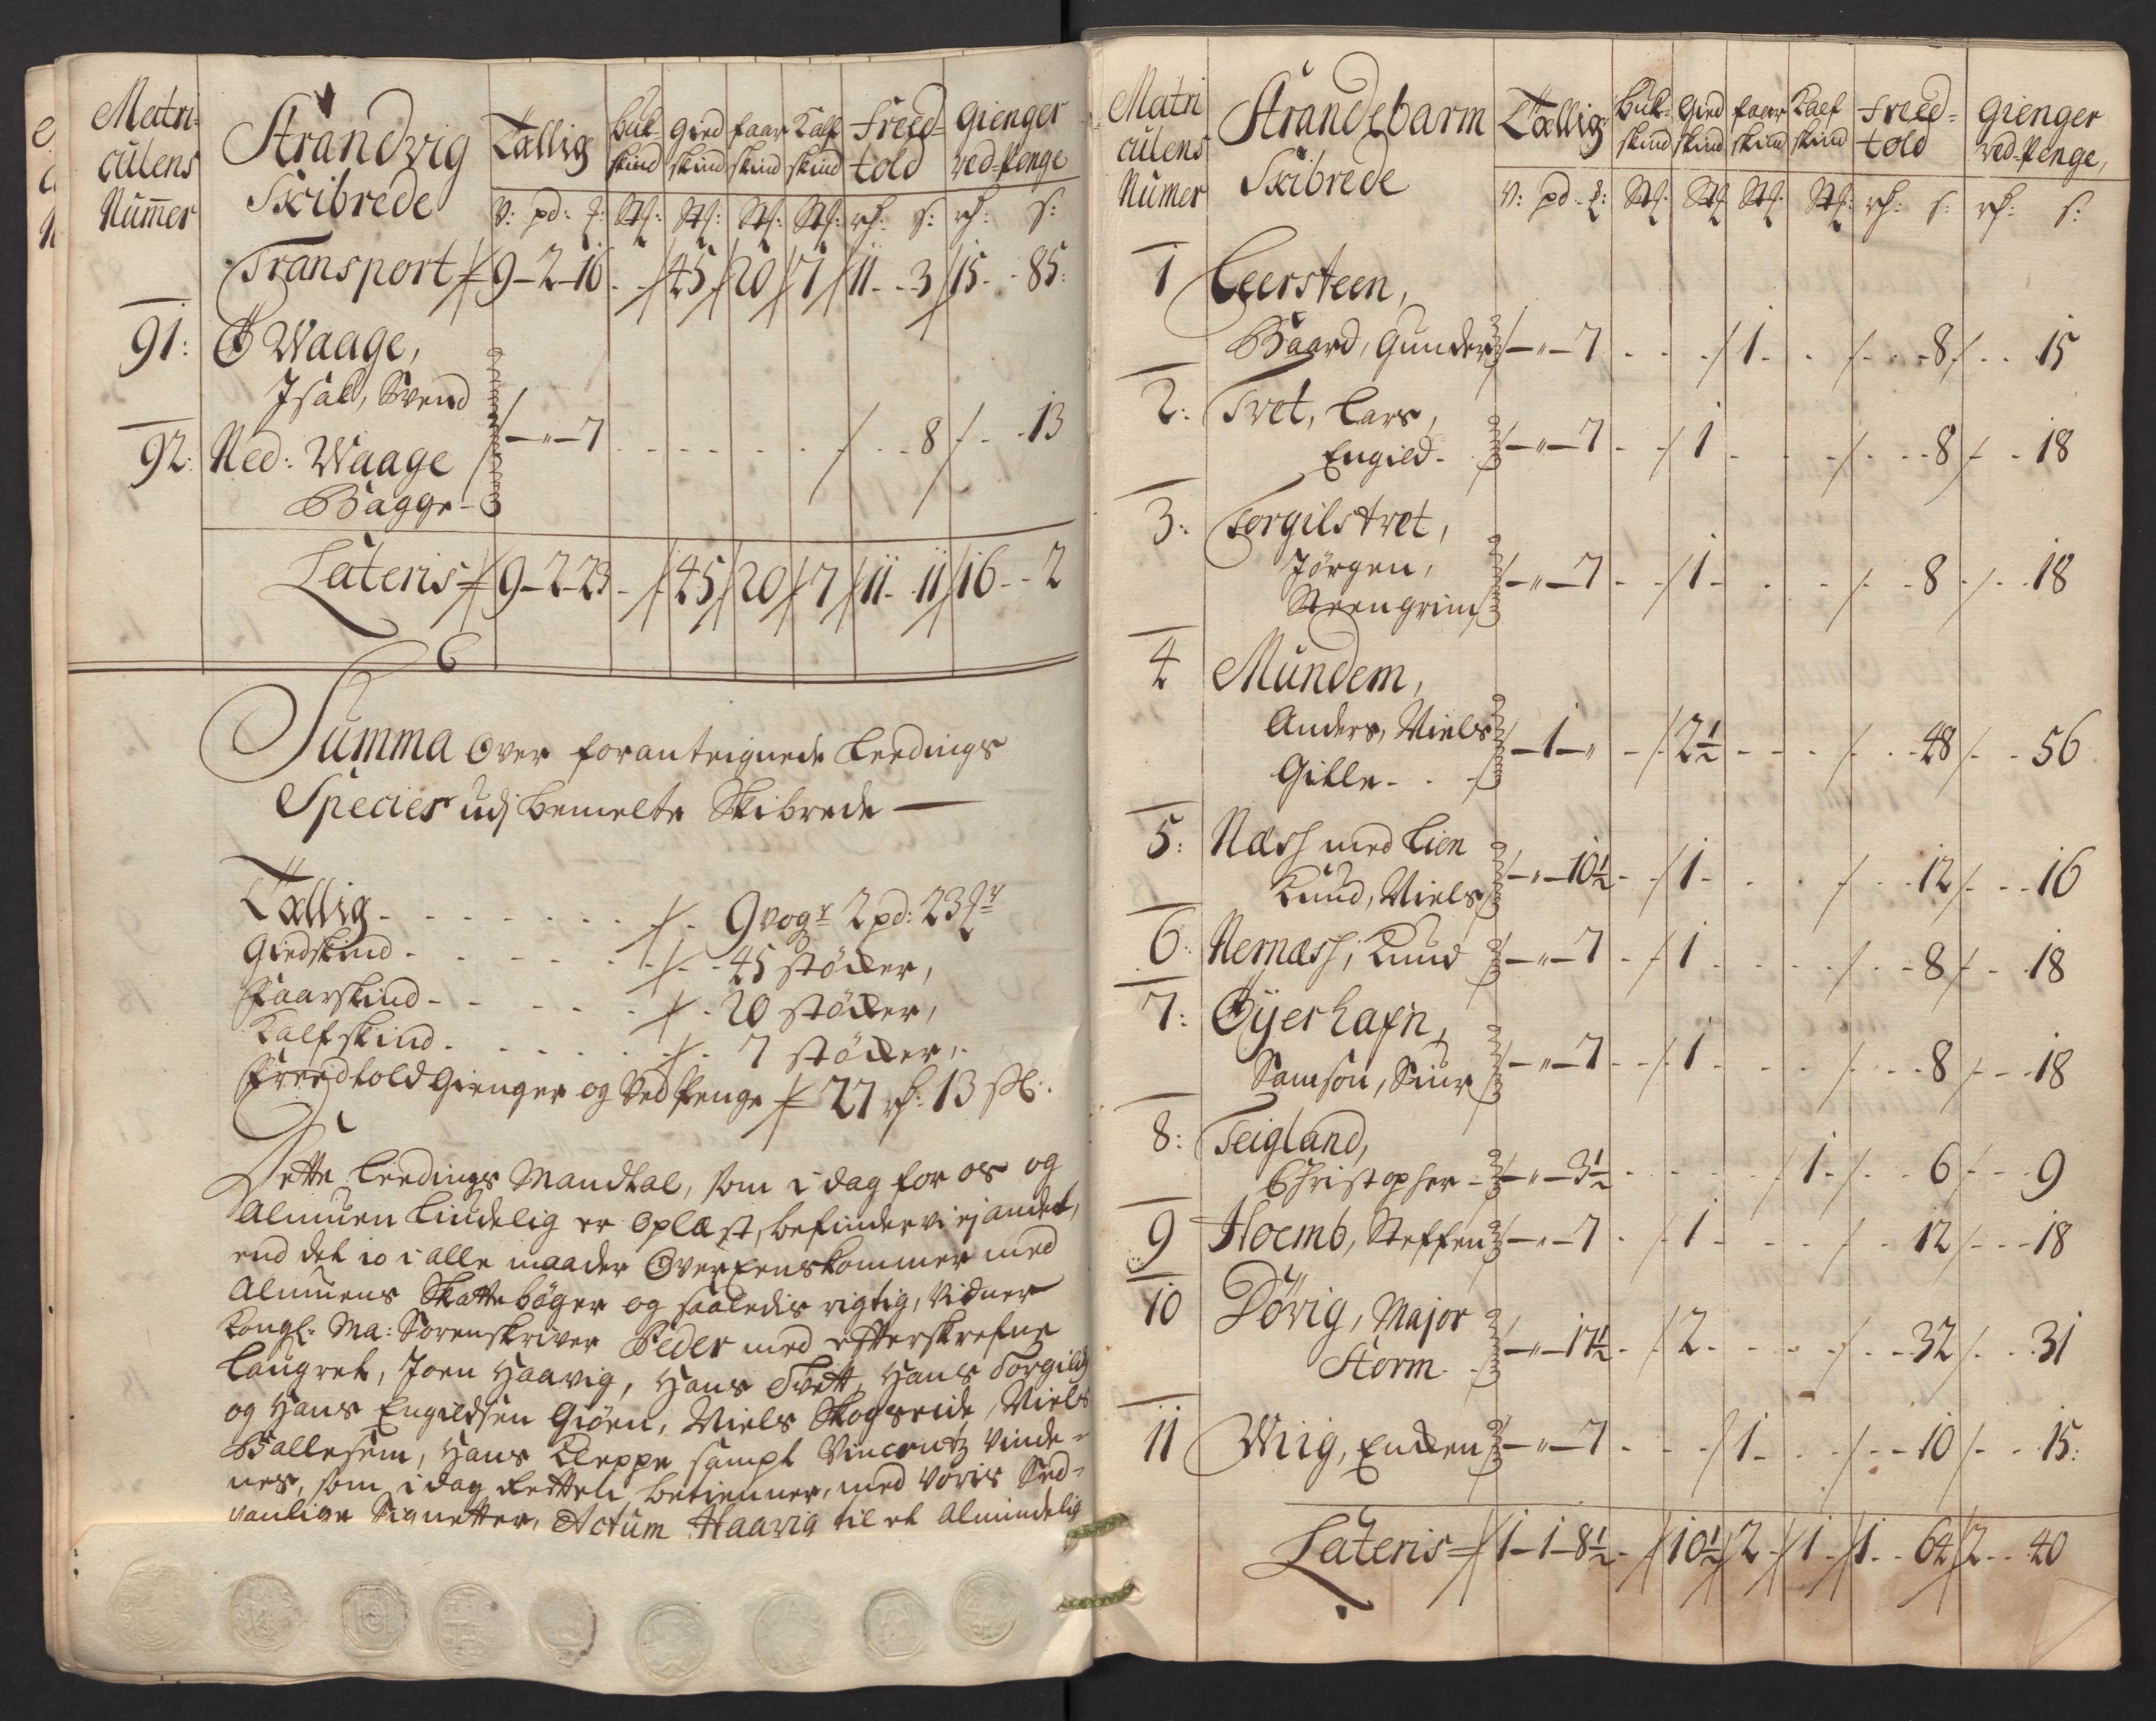 Matri-
culens
Num̄er
Strandvig
Skibrede
Tallig
Buk-
skind
Gied
skind
faar
skind
Kalf
skind
Freed-
told
Gienger
ved-Penge
V: pd: : Stk: Stk: Stk: Stk: rd: s: rd: s:
Transport 9-2-16 45 20 7 11 - - 3 15 - - 85:
91: Ø Waage,
Isak, Svend
- " - 7 8 13
92: Ned: Waage
Bagge -
Lateris 9-2-23 45 20 7 11 - 11 16 - - 2
Summa Over foranteignede Leedings
Species udj bemelte Skibrede —
Tallig - - - - - - 9 vogr 2 pd: 23
Giedskind - - - - - 45 støcker,
Faarskind - - - - - 20 støcker,
Kalfskind - - - - - 7 støcker,
Freedtold Gienger og Vedpenge 27 rd: 13 sk:
Dette Leedings Mandtal, som i dag for os og
Almuen Liudelig er Oplæst, befinder vi ej andet,
end det io i alle maader Overeenskommer med
Almuens Skattebøger og saaledis rigtig, Vidner
Kongl: Ma: Sorenskriver Peder med efterskrefne
Laugret, Joen Haavig, Hans Tvett, Hans Torgilds
og Hans Engildsen Giøen, Niels Skogseide, Niels
Ballesem, Hans Kleppe sampt Vincentz Vinde-
nes, som i dag Retten betienner, med Voris Sed-
vanlige Signetter, Actum Haavig til et Almindelig
Matri
culens
Numer
Strandebarm
Skibrede
Tallig
Buk-
skind
Gied
skind
faar
skind
Kalf
skind
Freed-
told
Gienger
ved-Penge,
V: pd - : Stk: Stk: Stk: Stk: rd: s: rd: s:
1 Leersteen,
Baard, Gunder - " - 7 1 8 15
2: Tvet, Lars,
Engild - - " - 7 1 8 18
3: Torgilstvet,
Jørgen,
Steengrim - " - 7 1 8 18
4 Mundem,
Anders, Niels
Gille - - 1 - " 2½ 48 56
5: Næss med Lien
Knud, Niels - " - 10½ 1 12 16
6: Nernæss, Knud - " - 7 1 8 18
7: Øyerhafn,
Samson, Siur - " - 7 1 8 18
8: Teigland,
Christopher - - " - 3½ 1 6 9
9 Hoemb, Steffen - " - 7 1 12 18
10 Døvig, Major
Storm - " - 17½ 2 32 31
11 Wiig, Encken - " - 7 1 10 15:
Lateris 1-1-8½ 10½ 2 1 1 - - 64 2 - - 40